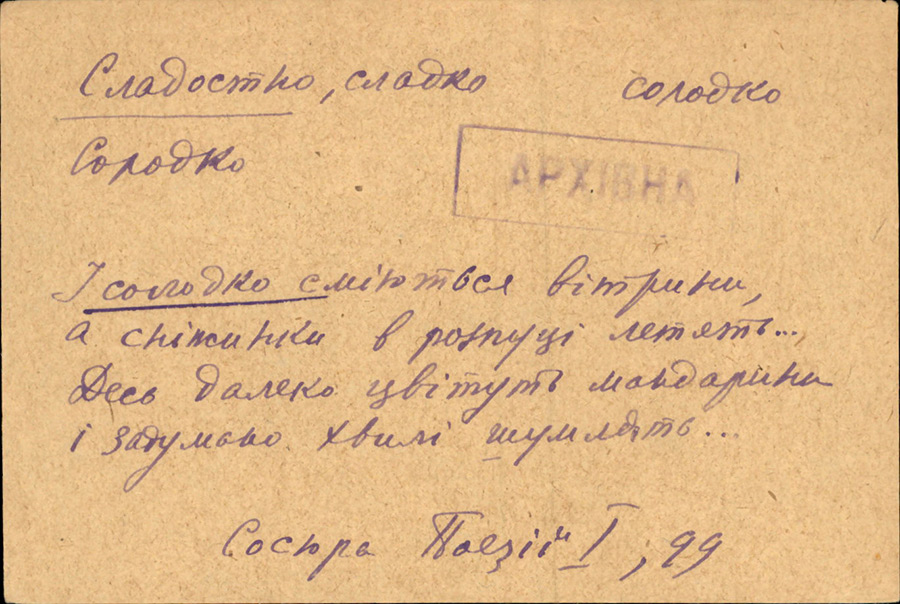 Сладостно, сладко солодко
Сородко
АРХІВНА
І солодко сміються вітрини,
а сніжинки в розпуці летять...
Десь далеко цвітуть мандарини
і задумано хвилі шумлять...
Сосюра Поезії I, 99